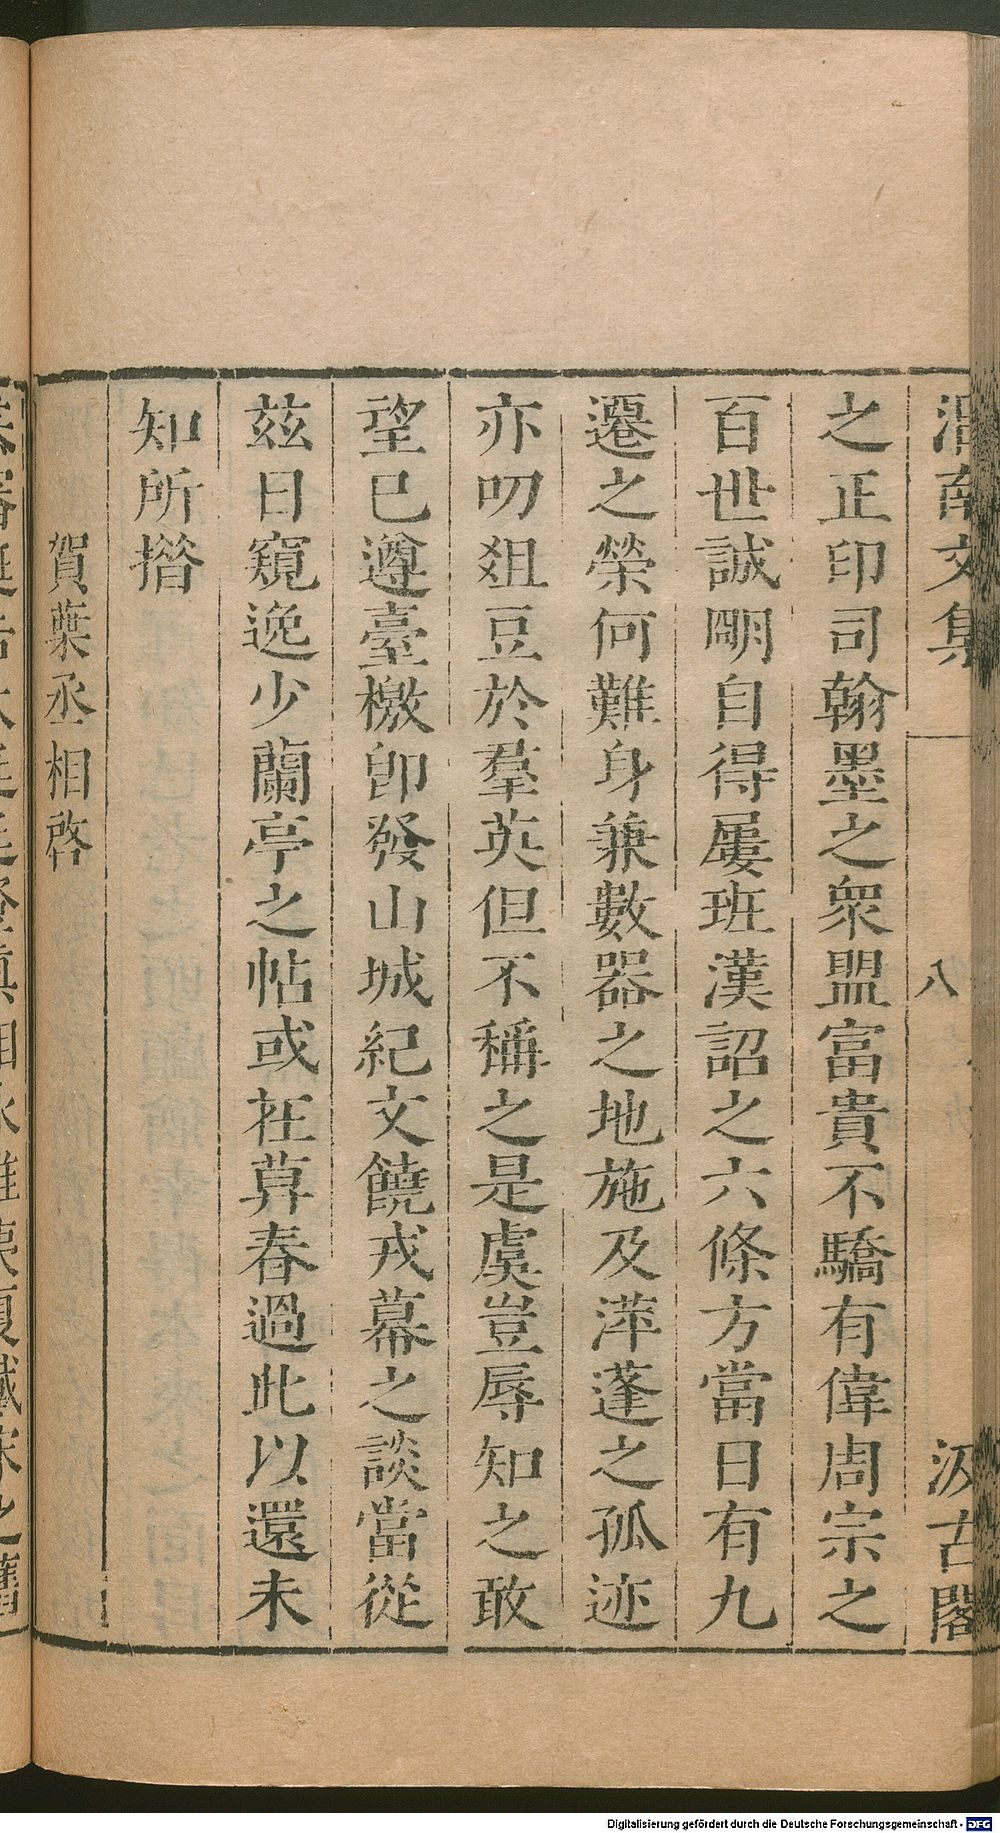 渭南文集 八 汲古閣
之正印司翰墨之衆盟富貴不驕有偉周宗之
百世誠明自得屢班漢詔之六條方當日有九
遷之榮何難身兼數器之地施及萍蓬之孤迹
亦叨俎豆於羣英但不稱之是虞豈辱知之敢
望已遵臺檄卽發山城紀文饒戎幕之談當從
茲日窺逸少蘭亭之帖或在莫春過此以還未
知所措
賀葉丞相啓
Digitalisierung gefördert durch die Deutsche Forschungsgemeinschaft - DFG